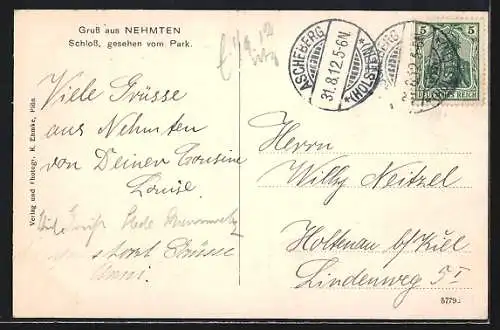 Gruß aus NEHMTEN
Schloß, gesehen vom Park.
ASCHEBERG
31.8.12.5-6N
(HOLSTEIN)
5 5
DEUTSCHES REICH
Viele Grüsse
aus Nehmten
von Deiner Cousine
Louise.
Grüsse
Herrn
Willy Neitzel
Holtenau b/Kiel
Lindenweg 5 I
Verlag und Photogr. H. Ehmke, Plön.
5779